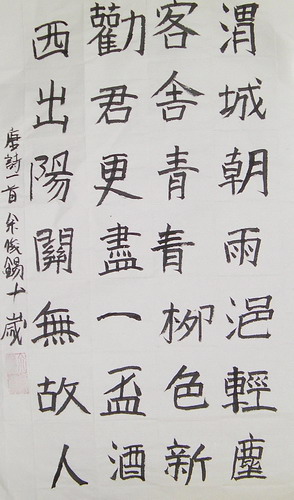 渭城朝雨浥輕塵
客舍青青柳色新
勸君更盡一盃酒
西出陽關無故人
唐詩一首 余俊錫十歲